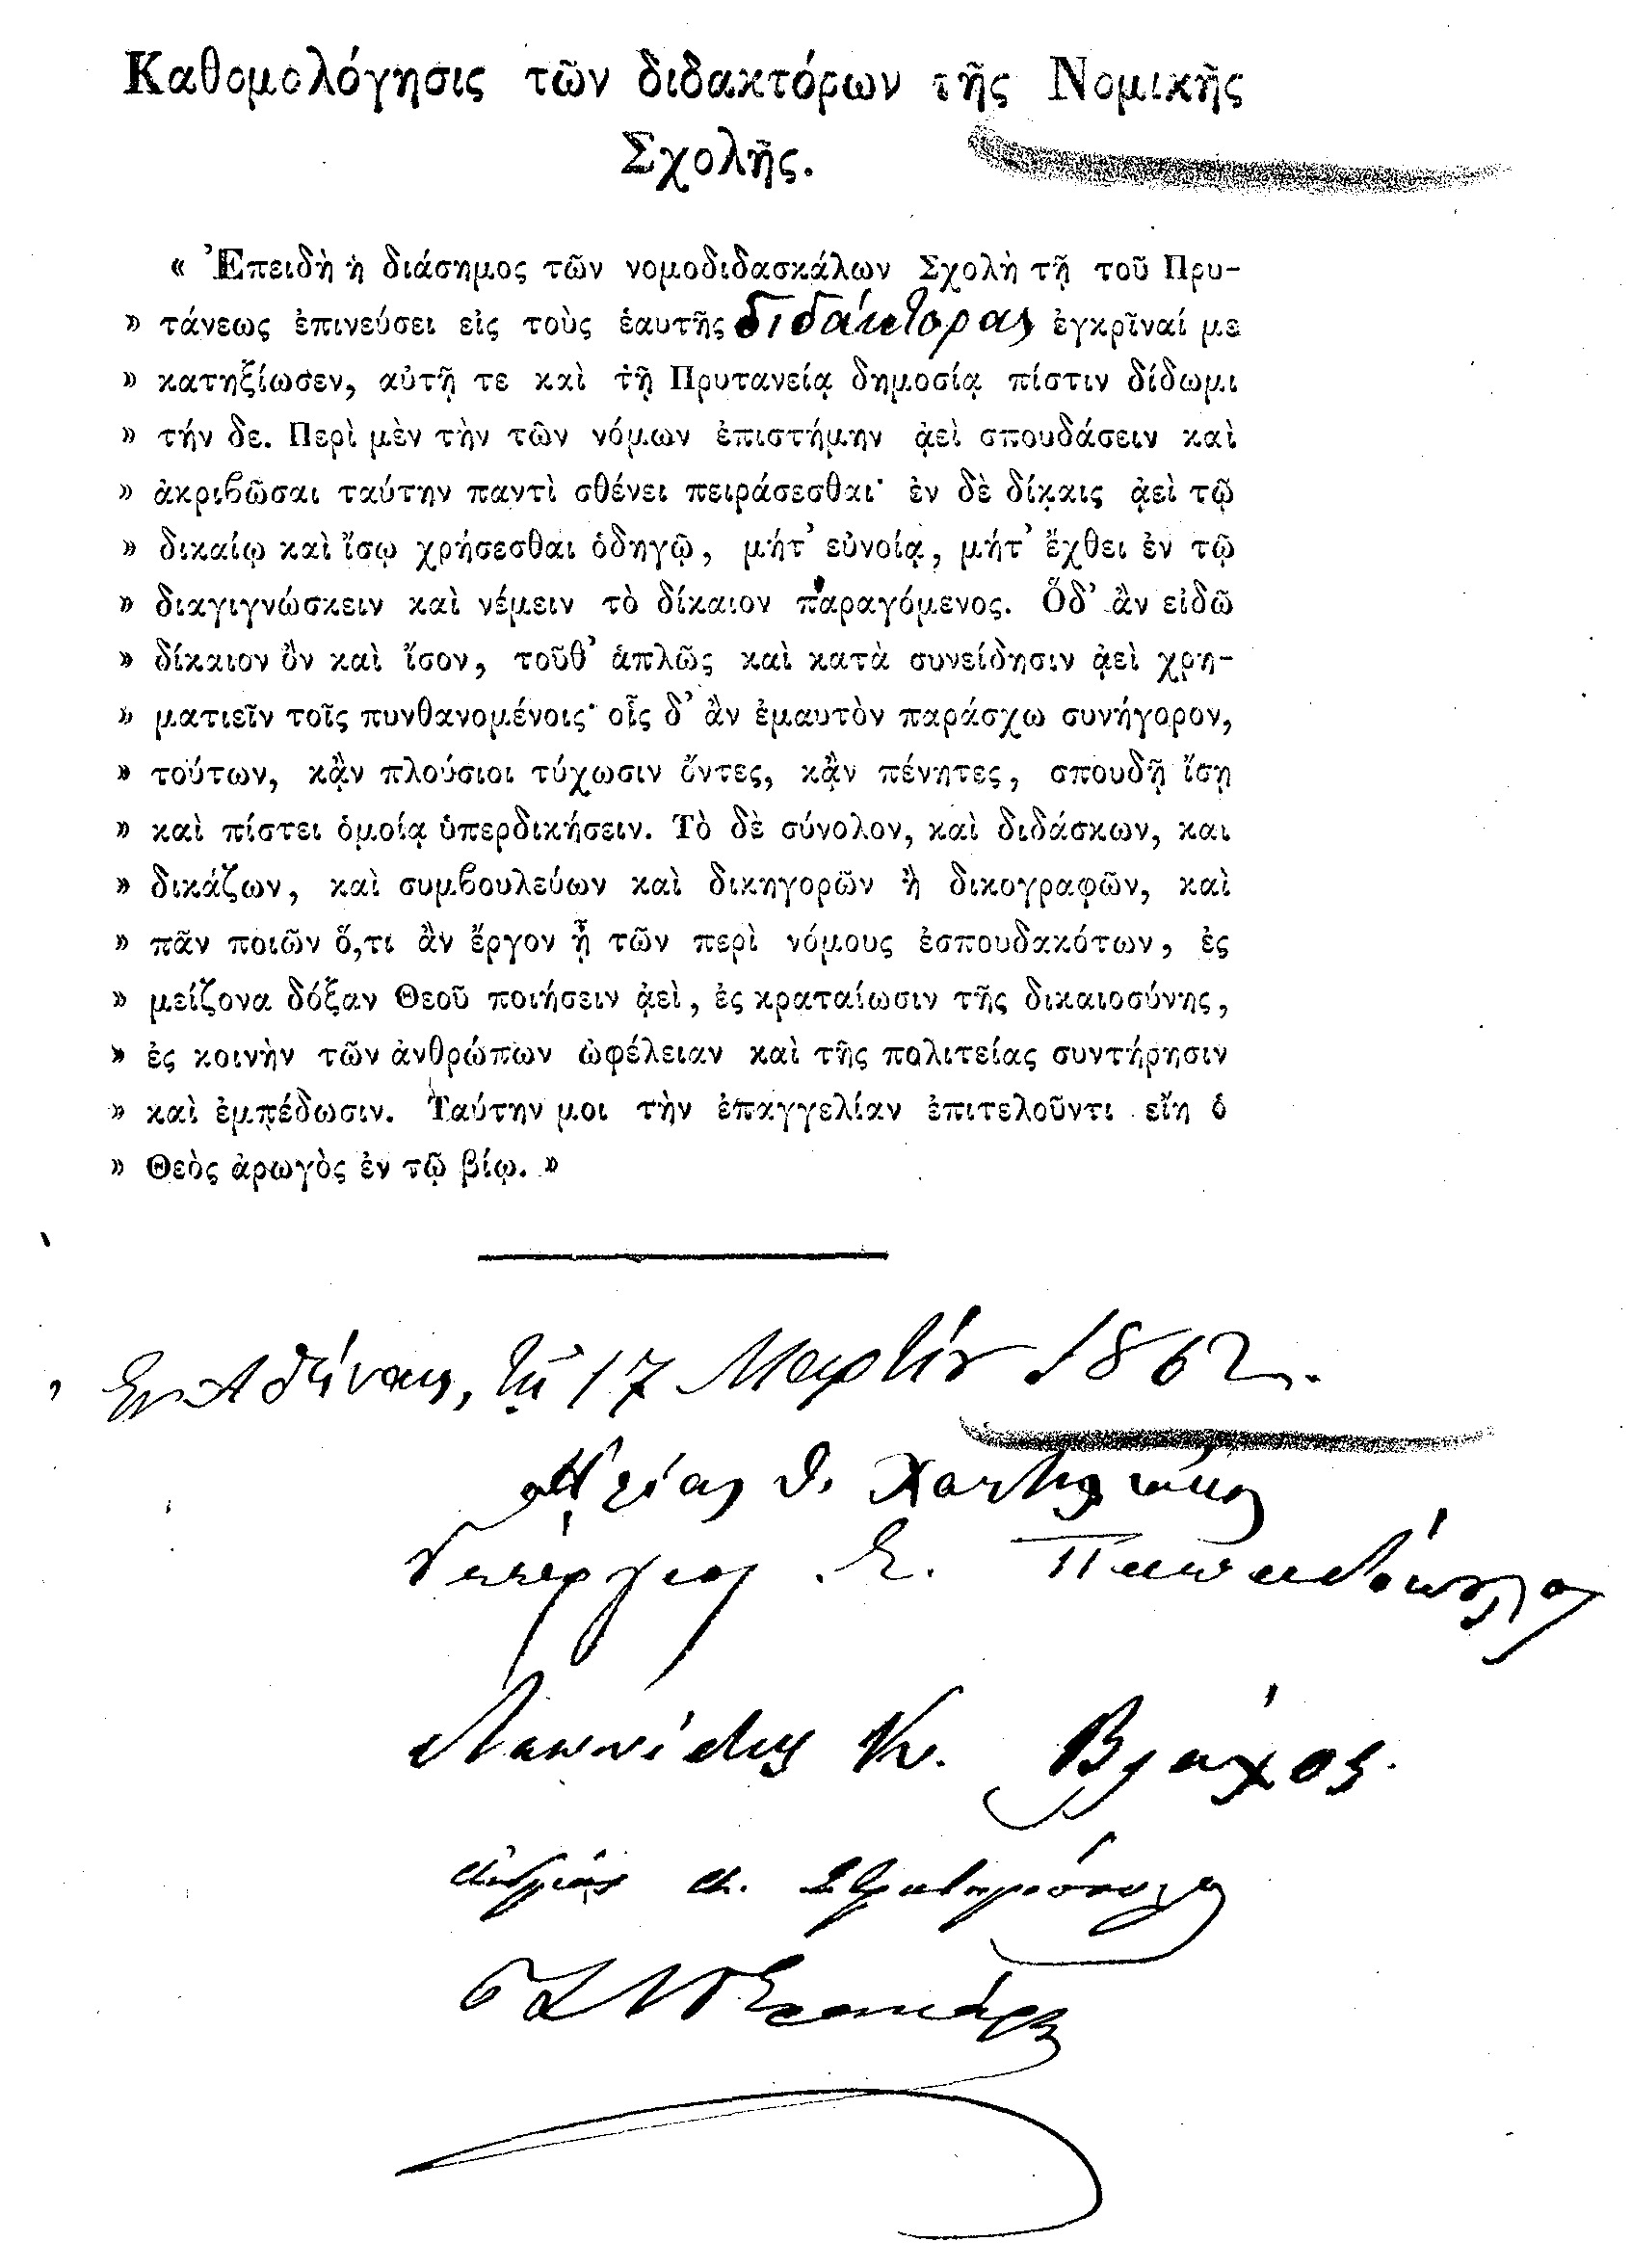 Καθομολόγησις τῶν διδακτόρων τῆς Νομικῆς
Σχολῆς.
« Ἐπειδὴ ἡ διάσημος τῶν νομοδιδασκάλων Σχολὴ τῇ τοῦ Πρυ-
» τάνεως ἐπινεύσει εἰς τοὺς ἑαυτῆς διδάκτορας ἐγκρῖναί με
» κατηξίωσεν, αὐτῇ τε καὶ τῇ Πρυτανείᾳ δημοσίᾳ πίστιν δίδωμι
» τήν δε. Περὶ μὲν τὴν τῶν νόμων ἐπιστήμην ᾀεὶ σπουδάσειν καὶ
» ἀκριβῶσαι ταύτην παντὶ σθένει πειράσεσθαι· ἐν δὲ δίκαις ᾀεὶ τῷ
» δικαίῳ καὶ ἴσῳ χρήσεσθαι ὁδηγῷ, μήτ’ εὐνοίᾳ, μήτ’ ἔχθει ἐν τῷ
» διαγιγνώσκειν καὶ νέμειν τὸ δίκαιον παραγόμενος. Ὅδ’ ἂν εἰδῶ
» δίκαιον ὂν καὶ ἴσον, τοῦθ’ ἁπλῶς καὶ κατὰ συνείδησιν ᾀεὶ χρη-
» ματιεῖν τοῖς πυνθανομένοις· οἷς δ’ ἂν ἐμαυτὸν παράσχω συνήγορον,
» τούτων, κᾂν πλούσιοι τύχωσιν ὄντες, κᾂν πένητες, σπουδῇ ἴσῃ
» καὶ πίστει ὁμοίᾳ ὑπερδικήσειν. Τὸ δὲ σύνολον, καὶ διδάσκων, και
» δικάζων, καὶ συμβουλεύων καὶ δικηγορῶν ἢ δικογραφῶν, καὶ
» πᾶν ποιῶν ὅ,τι ἂν ἔργον ᾖ τῶν περὶ νόμους ἐσπουδακότων, ἐς
» μείζονα δόξαν Θεοῦ ποιήσειν ᾀεὶ, ἐς κραταίωσιν τῆς δικαιοσύνης,
» ἐς κοινὴν τῶν ἀνθρώπων ὠφέλειαν καὶ τῆς πολιτείας συντήρησιν
» καὶ ἐμπέδωσιν. Ταύτην μοι τὴν ἐπαγγελίαν ἐπιτελοῦντι εἴη ὁ
» Θεὸς ἀρωγὸς ἐν τῷ βίῳ. »
Ἐν Ἀθήναις, τῇ 17 Μαρτίου 1862.
Ἠλίας
Γεώργιος Σ. Παπαδόπουλος
Λεωνίδας Κ. Βλάχος.